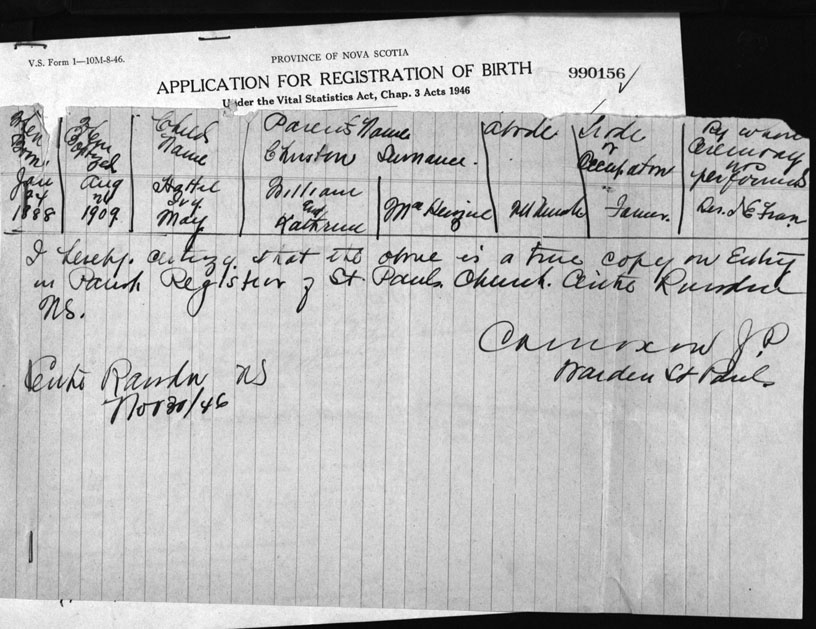 V.S. Form 1—10M-8-46.
PROVINCE OF NOVA SCOTIA
APPLICATION FOR REGISTRATION OF BIRTH
990156
Under the Vital Statistics Act, Chap. 3 Acts 1946
When Born. Childs Name Parents Name abode Trade or Occupation By whom Ceremony was performed
Christian Surname.
Jan 24 1888 Aug 1909 Ivy May William and Kathrine Farmer.
I hereby certify that the above is a true copy on Entry
in Parish Register of St Pauls Church. Centre Rawdon
NS.
J.P
Warden St Pauls
Centre Rawdon NS
Nov 30/46